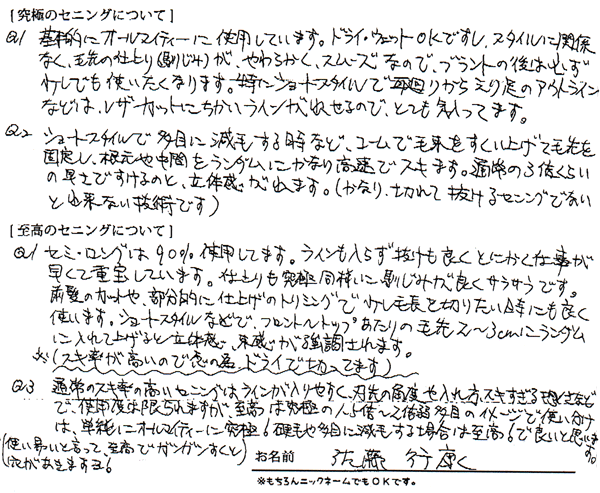 [究極のセニングについて]
Q1 基本的にオールマイティーに使用しています。ドライ・ウェットOKですし、スタイルに関係
なく、毛先の仕上り(馴じみ)が、やわらかく、スムーズなので、ブラントの後は必ず
少しでも使いたくなります。特にショートスタイルで耳回りからえり足のアウトライン
などは、レザーカットにちかいラインが、とれるので、とても気入ってます。
Q2 ショートスタイルで多目に減毛する時など、コームで毛束をすくい上げて毛先を
固定し、根元や中間をランダムにかなり高速でスキます。通常の3倍くらい
の早さですけるのと、立体感がでます。(かなり、切れて抜けるセニングでない
と出来ない技術です)
[至高のセニングについて]
Q1 セミ・ロングは90%使用してます。ラインも入らず抜けも良くとにかく仕事が
早くて重宝しています。仕上りも究極同様に馴じみが良くサラサラです。
前髪のカットや、部分的に仕上げのトリミングで少し毛長を切りたい時にも良く
使います。ショートスタイルなどで、フロントトップあたりの毛先2~3cmにランダム
に入れて上げると立体感、束感が強調されます。
※(スキ率が高いので念の為ドライで切ってます)
Q3 通常のスキ率の高いセニングはラインが入りやすく、刃先の角度や入れ方、スキすぎる怖さなど
で、使用度は限られますが、至高は究極の1.5倍~2倍弱多目のイメージで使い分け
は、単純にオールマイティーに究極!硬毛や多目に減毛する場合は至高!で良いと思います。
(使い易いと言って、至高でガンガンすくと
穴があきますヨ!
お名前 佐藤 行康
※もちろんニックネームでもOKです。